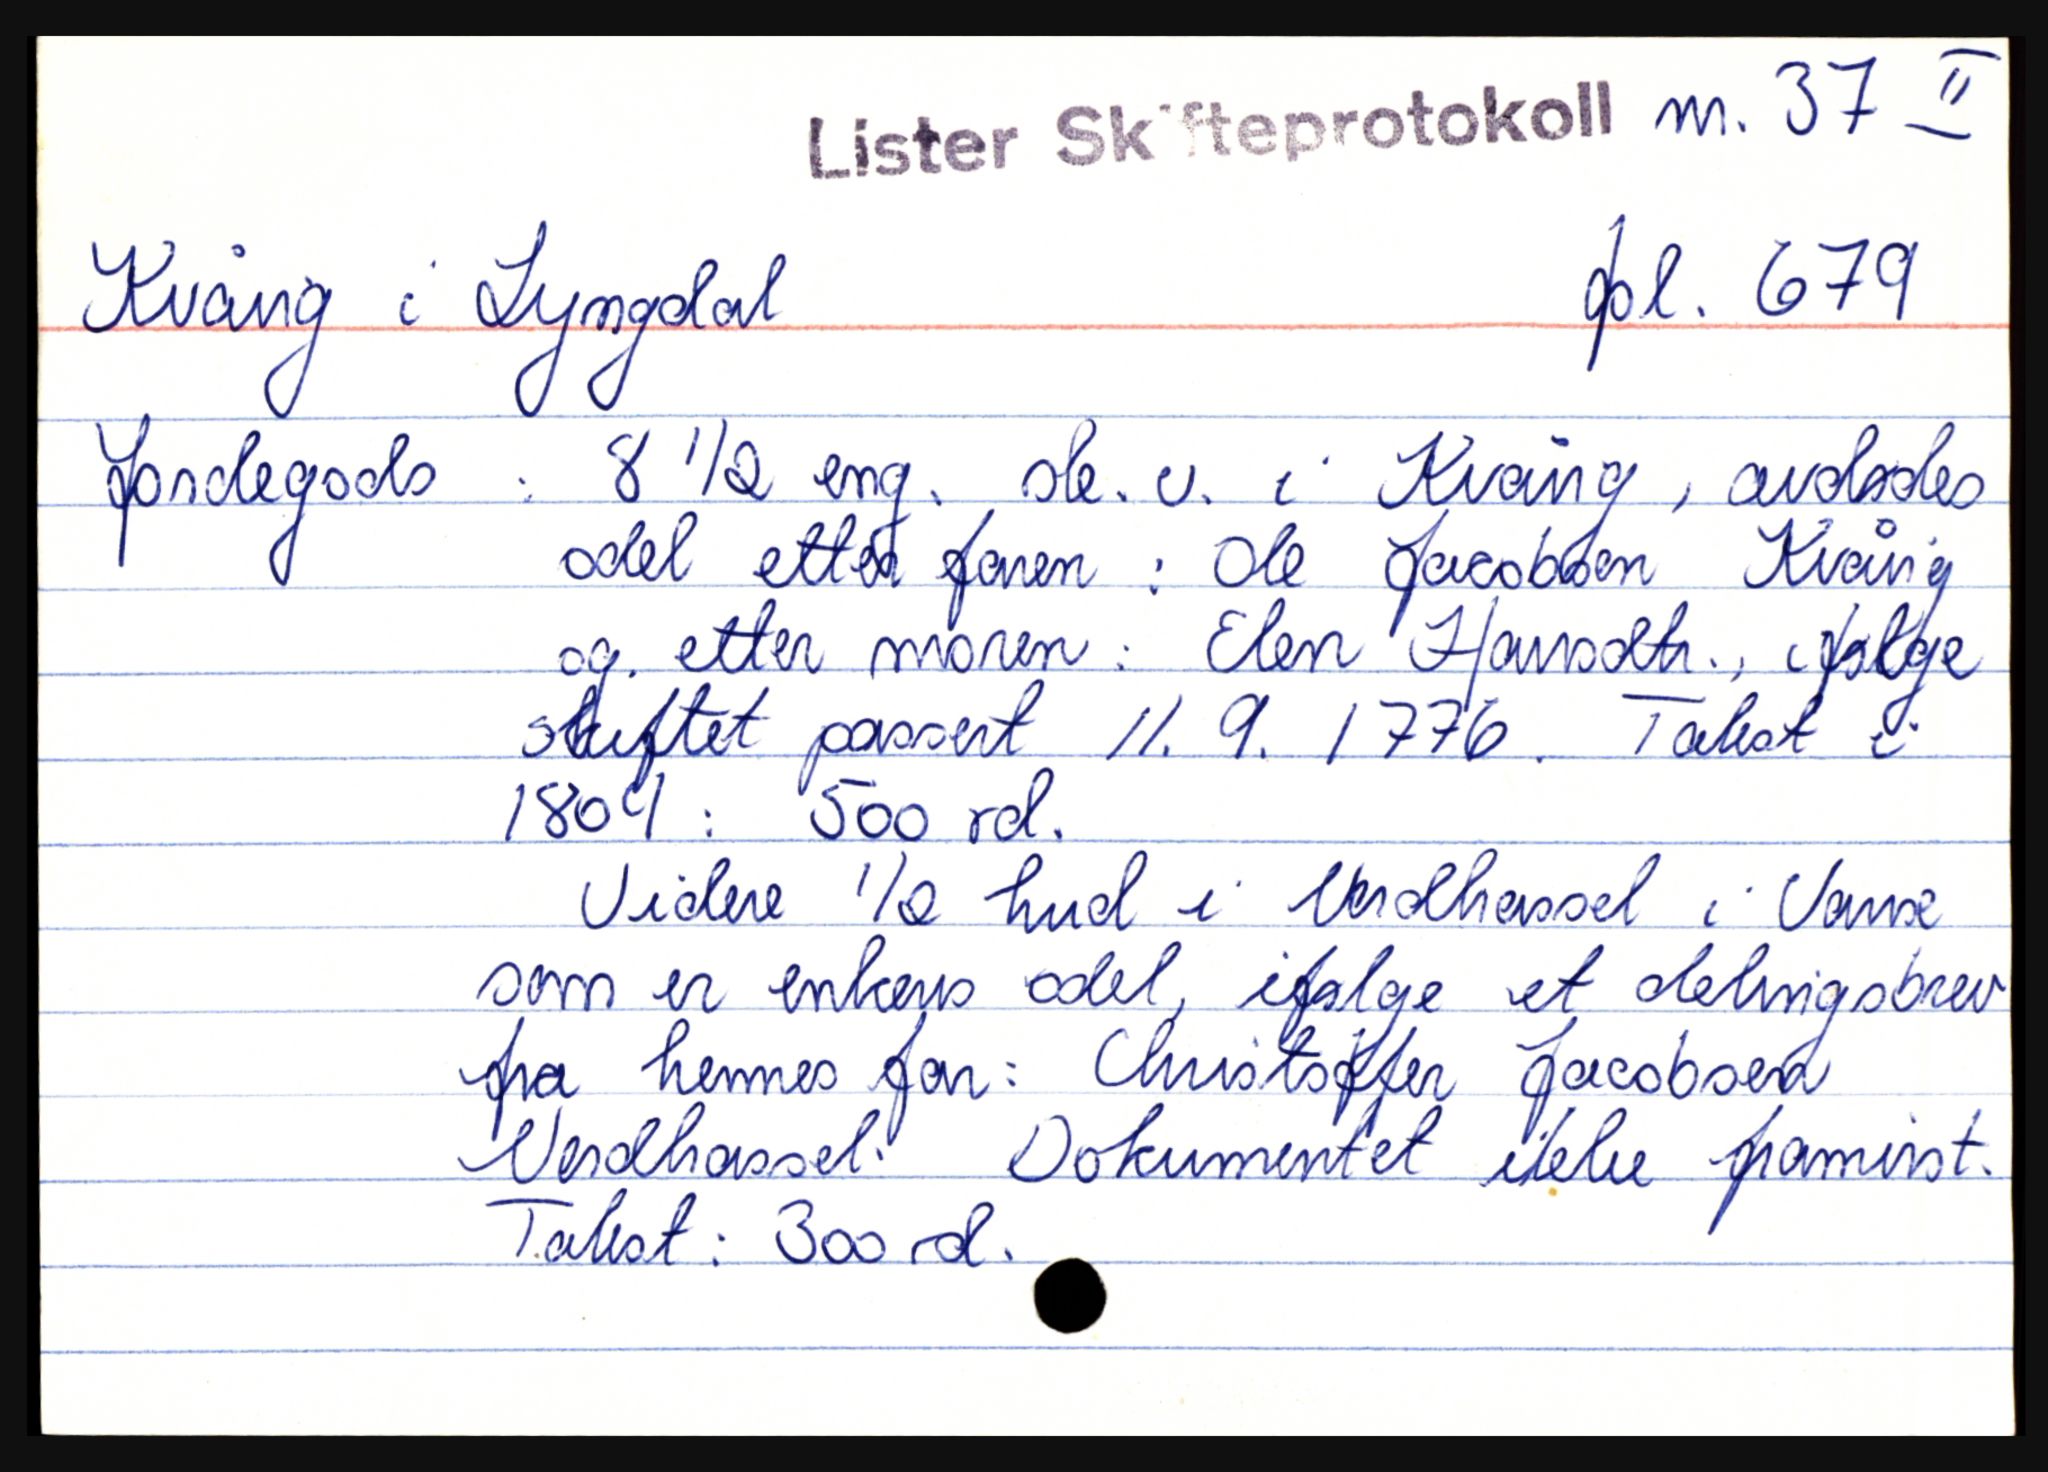 Lister Skifteprotokoll nr. 37 II
Kvåvig i Lyngdal fol. 679
Jordegods : 8 1/2 eng. sle. v. i Kvåvig, avdødes
odel etter faren : Ole Jacobsen Kvåvig
og etter moren : Elen Hansdtr., ifølge
skiftet passert 11. 9. 1776. Takst i
1804 : 500 rd.
Videre 1/2 hud i Nordhassel i Vanse
som er enkens odel, ifølge et delingsbrev
fra hennes far : Christoffer Jacobsen
Nordhassel. Dokumentet ikke framvist.
Takst : 300 rd.